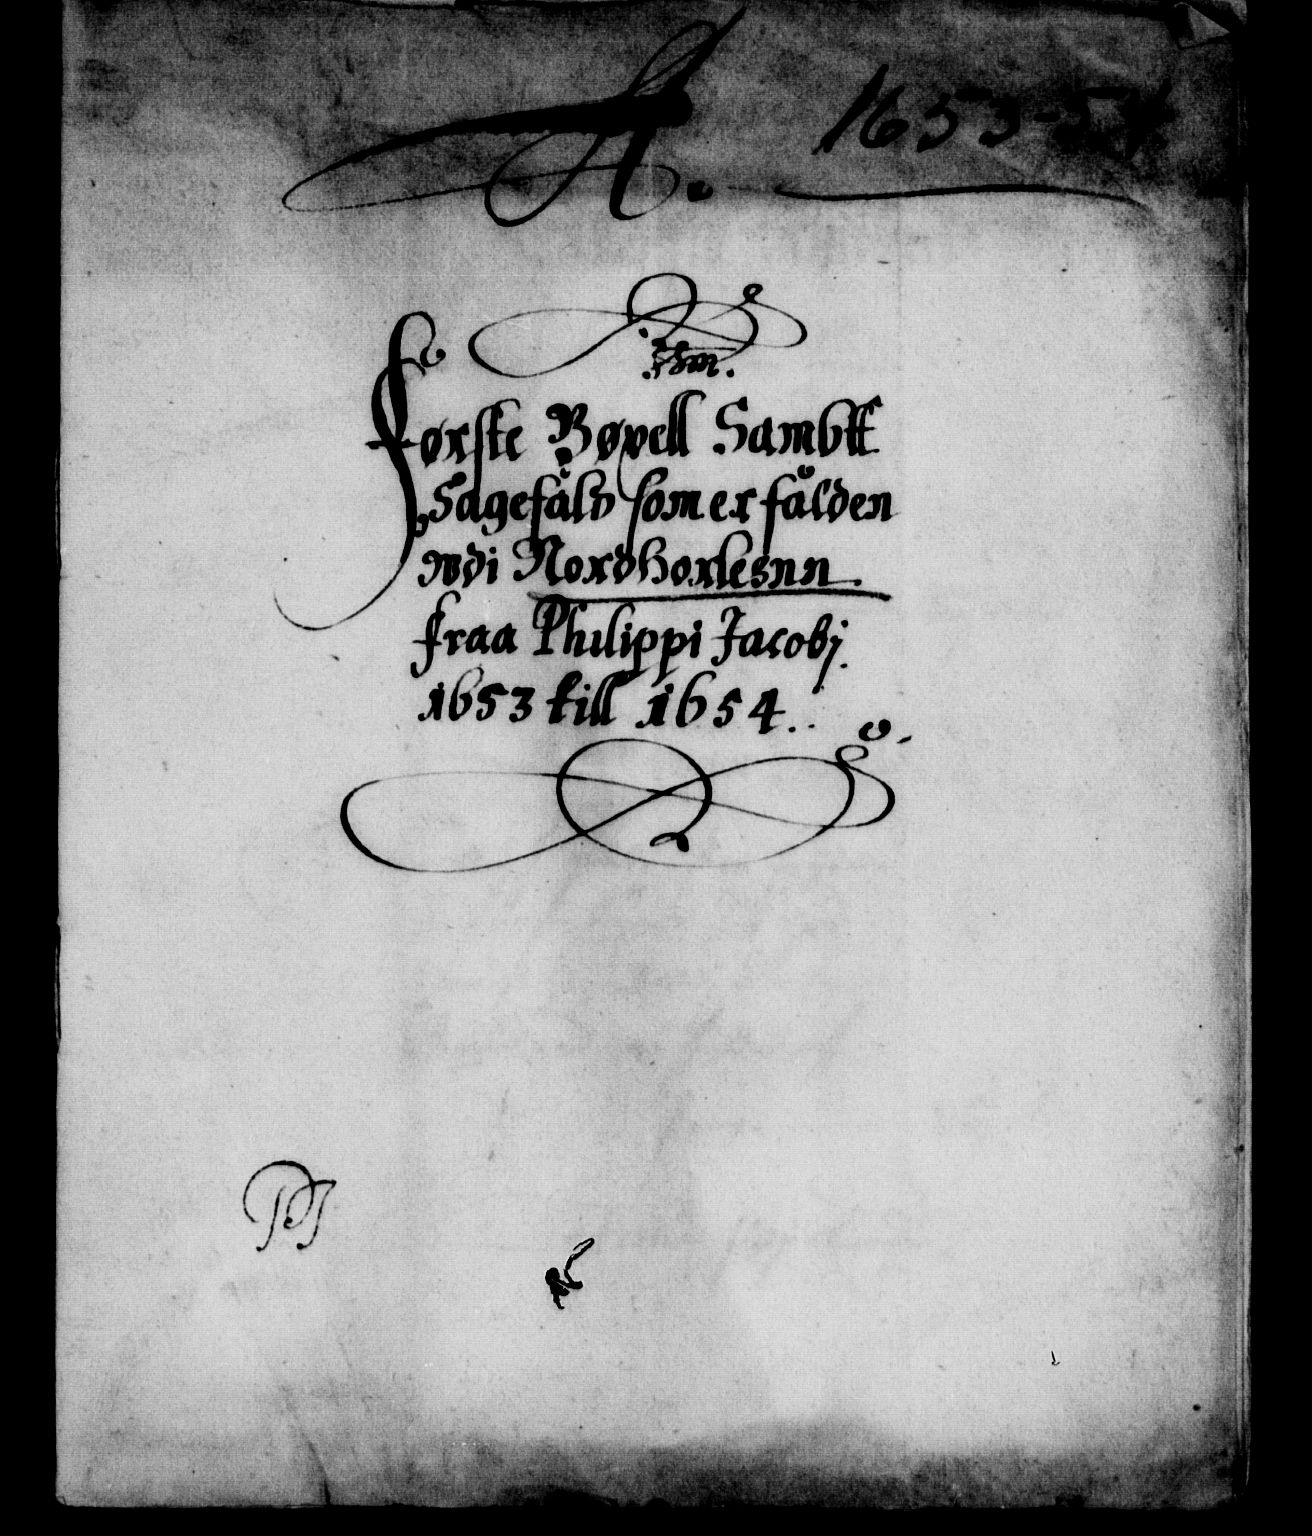 A.
1653-54
Første Bøxell Sambtt
Sagefald som er falden
wdi Nordhorlehnn.
fraa Philippi Jacobj.
1653 till 1654..
PI